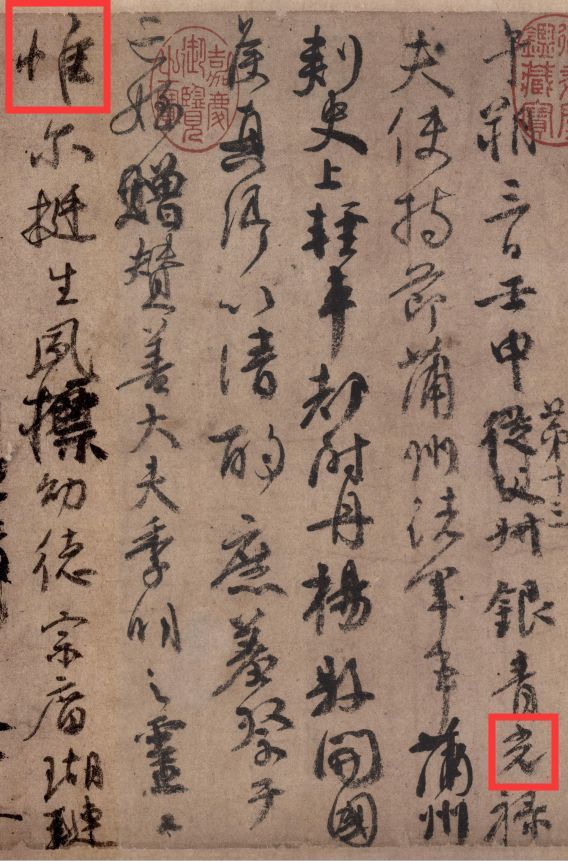 午朔三日壬申從父叔銀青光祿
第十三
夫使持節蒲州諸軍事蒲州
刺史上輕車都尉丹楊縣開國
侯真卿以清酌庶羞祭于
亡姪贈贊善大夫季明之靈曰
惟尔挺生夙標幼德宗廟瑚璉
嘉慶御覽之寶
鑑藏寶